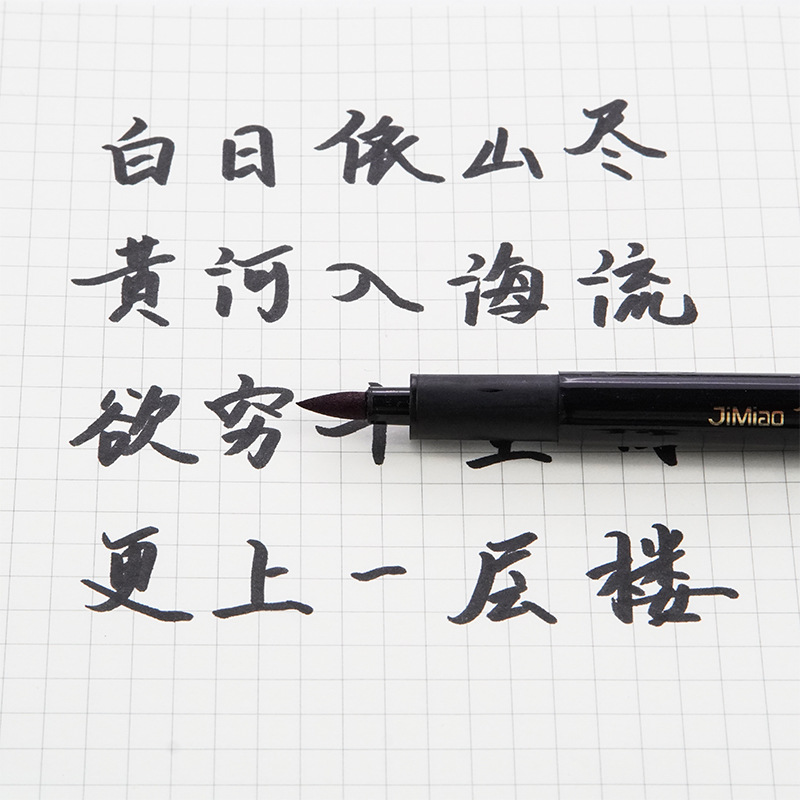 白日依山尽
黄河入海流
欲穷
JiMiao
更上一层楼